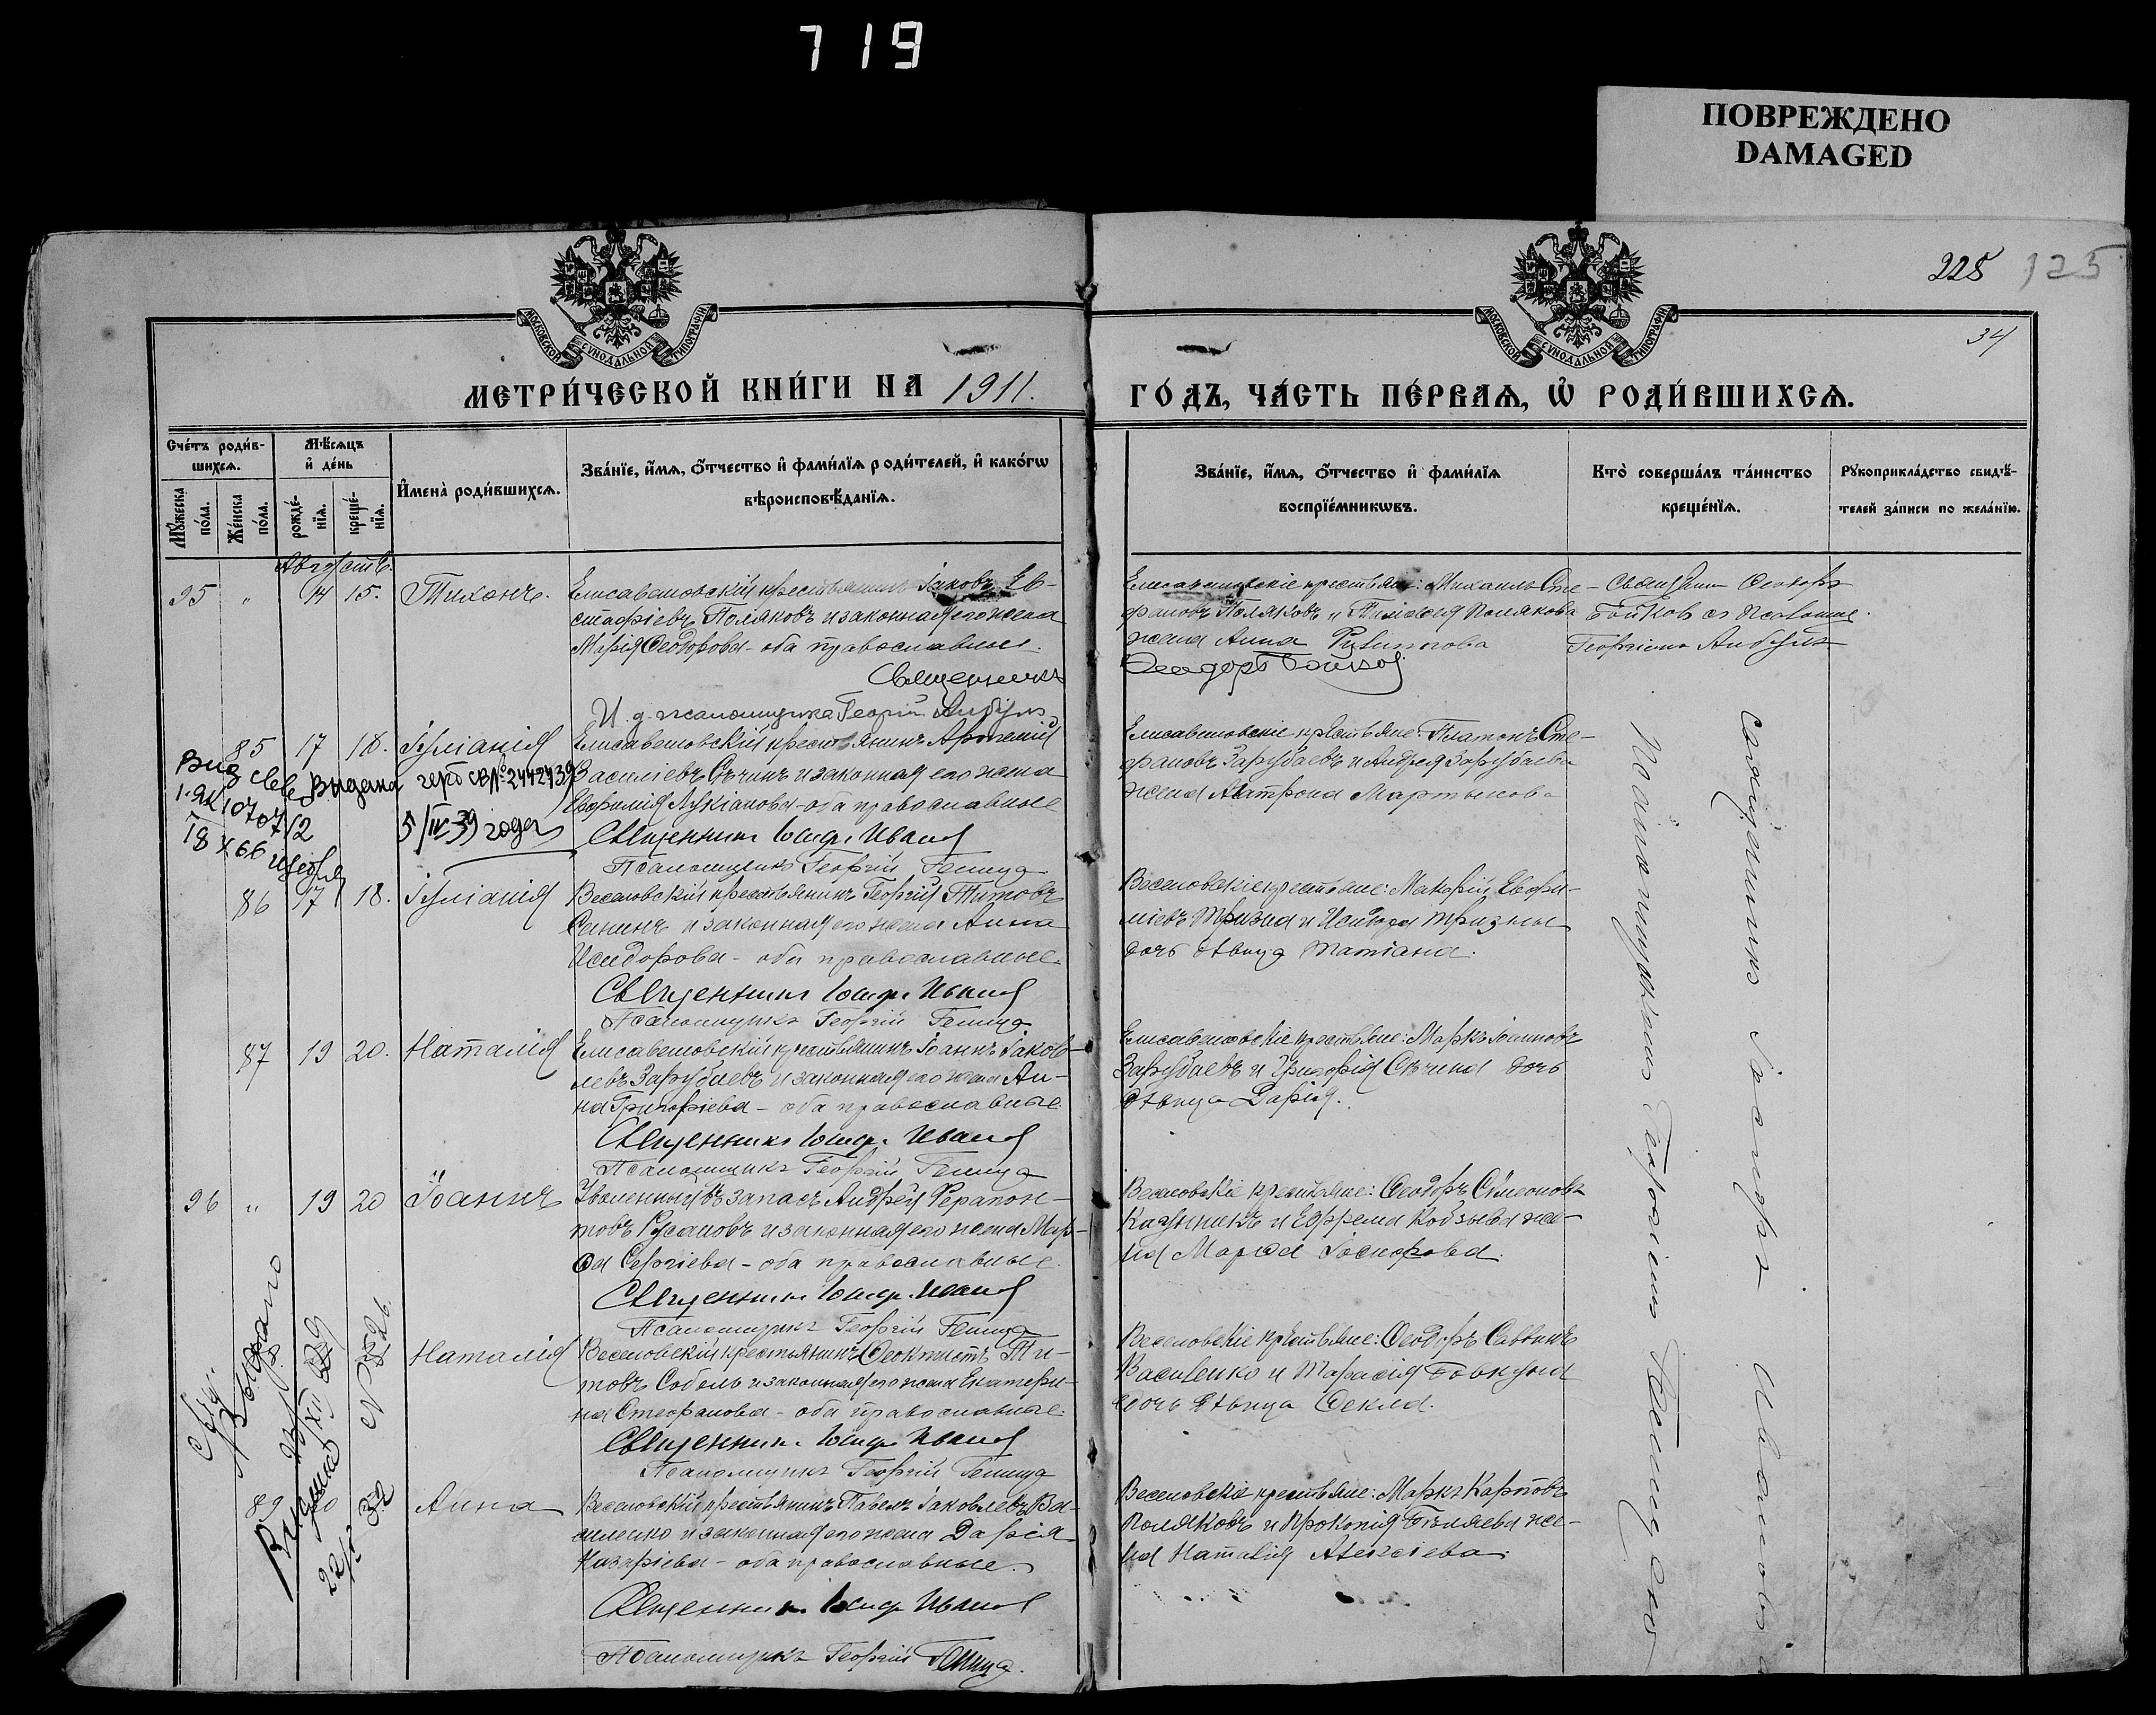 719
ПОВРЕЖДЕНО
DAMAGED
225 125
34
МОСКОВСКОЙ СѴНОДАЛЬНОЙ ТИПОГРАФІИ
МОСКОВСКОЙ СѴНОДАЛЬНОЙ ТИПОГРАФІИ
МЕТРИ́ЧЕСКОЙ КНИ́ГИ НА 1911.
ГО́ДЪ, ЧА́СТЬ ПЕ́РВАѦ, Ѽ РОДИ́ВШИХСѦ.
Сче́тъ роди́в-
шихсѧ.
Мꙋ́жеска
по́ла.
Же́нска
по́ла.
Мѣ́сѧцъ
и҆ де́нь
рожде́-
нїѧ.
креще́-
нїѧ.
И҆мена̀ роди́вшихсѧ.
Зва́нїе, и҆́мѧ, ѻ҆́тчество и҆ фами́лїѧ роди́телей, и҆ како́гѡ
вѣроисповѣ́данїѧ.
Зва́нїе, и҆́мѧ, ѻ҆́тчество и҆ фами́лїѧ
воспрїе́мникѡвъ.
Кто̀ соверша́лъ та́инство
креще́нїѧ.
Рꙋкоприкла́дство свидѣ́-
телей за́писи по жела́нїю.
Августъ.
95 " 14 15. Тихонъ.
Елисаветовскій крестьянинъ Іаковъ Ев-
стафіевъ Поляковъ и законная его жена
Марія Ѳеодорова - оба православные.
Священникъ
И. д. псаломщика Георгій
Елисаветовскіе крестьяне: Михаилъ Сте-
фановъ Поляковъ и Полякова
жена Анна
Ѳеодоръ Бойков
Священник Ѳеодоръ
Бойков
Георгіемъ
85 17 18. Іуліанія
Елисаветовскій крестьянинъ Артемій
Василіевъ Сѣчинъ и законная его жена
Евфимія Лукіанова - оба православные
Священникъ Іосиф. Иванов
Псаломщикъ Георгій Геница
Выдана герб св № 2442439
5/IV 39 года
18 X 66
Елисаветовскіе крестьяне: Платонъ Сте-
фановъ Зарубаевъ и Андрея Зарубаева
жена Матрона Мартынова
86 17 18. Іуліанія
Веселовскій крестьянинъ Георгій Титовъ
Сенинъ и законная его жена Анна
Исидорова - оба православные.
Священникъ Іосиф. Иванов
Псаломщикъ Георгій Геница
Веселовскіе крестьяне: Макарій Евфи-
міевъ Тризна и Исидора Тризны
дочь дѣвица Татіана.
87 19 20. Наталія
Елисаветовскій крестьянинъ Іоаннъ Іаков-
левъ Зарубаевъ и законная его жена Ан-
на Григоріева - оба православные
Священникъ Іосиф. Иванов
Псаломщикъ Георгій Геница
Елисаветовскіе крестьяне: Маркъ Іоанновъ
Зарубаевъ и Григорія Сѣчина дочь
дѣвица Дарія.
96 " 19 20 Іоаннъ
Уволенный въ запасъ Андрей Ферапон-
товъ Русановъ и законная его жена Мар-
ѳа Сергіева - оба православные.
Священникъ Іосиф. Иванов
Псаломщикъ Георгій Геница
Веселовскіе крестьяне: Ѳеодоръ Симеоновъ
и Ефрема Кобзыва же-
на Марѳа Іосифова.
Наталія
Веселовскій крестьянинъ Ѳеоктистъ Ти-
товъ Соболь и законная его жена Екатери-
на Стефанова - оба православные.
Священникъ Іосиф Иванов
Псаломщикъ Георгій Геница
Выдано
Веселовскіе крестьяне: Ѳеодоръ Саввинъ
Василенко и Тарасія Бовкуна
дочь дѣвица Ѳекла.
89 Анна
Веселовскій крестьянинъ Павелъ Іаковлевъ Ва-
силенко и законная его жена Дарія
Назаріева - оба православные.
Священникъ Іосиф Иванов
Псаломщикъ Георгій Геница.
Веселовскіе крестьяне: Маркъ Карповъ
Поляковъ и Прокопія Бѣляева же-
на Наталія Алексіева.
Священникъ Іосифъ Ивановъ
Псаломщикъ Георгій Геница